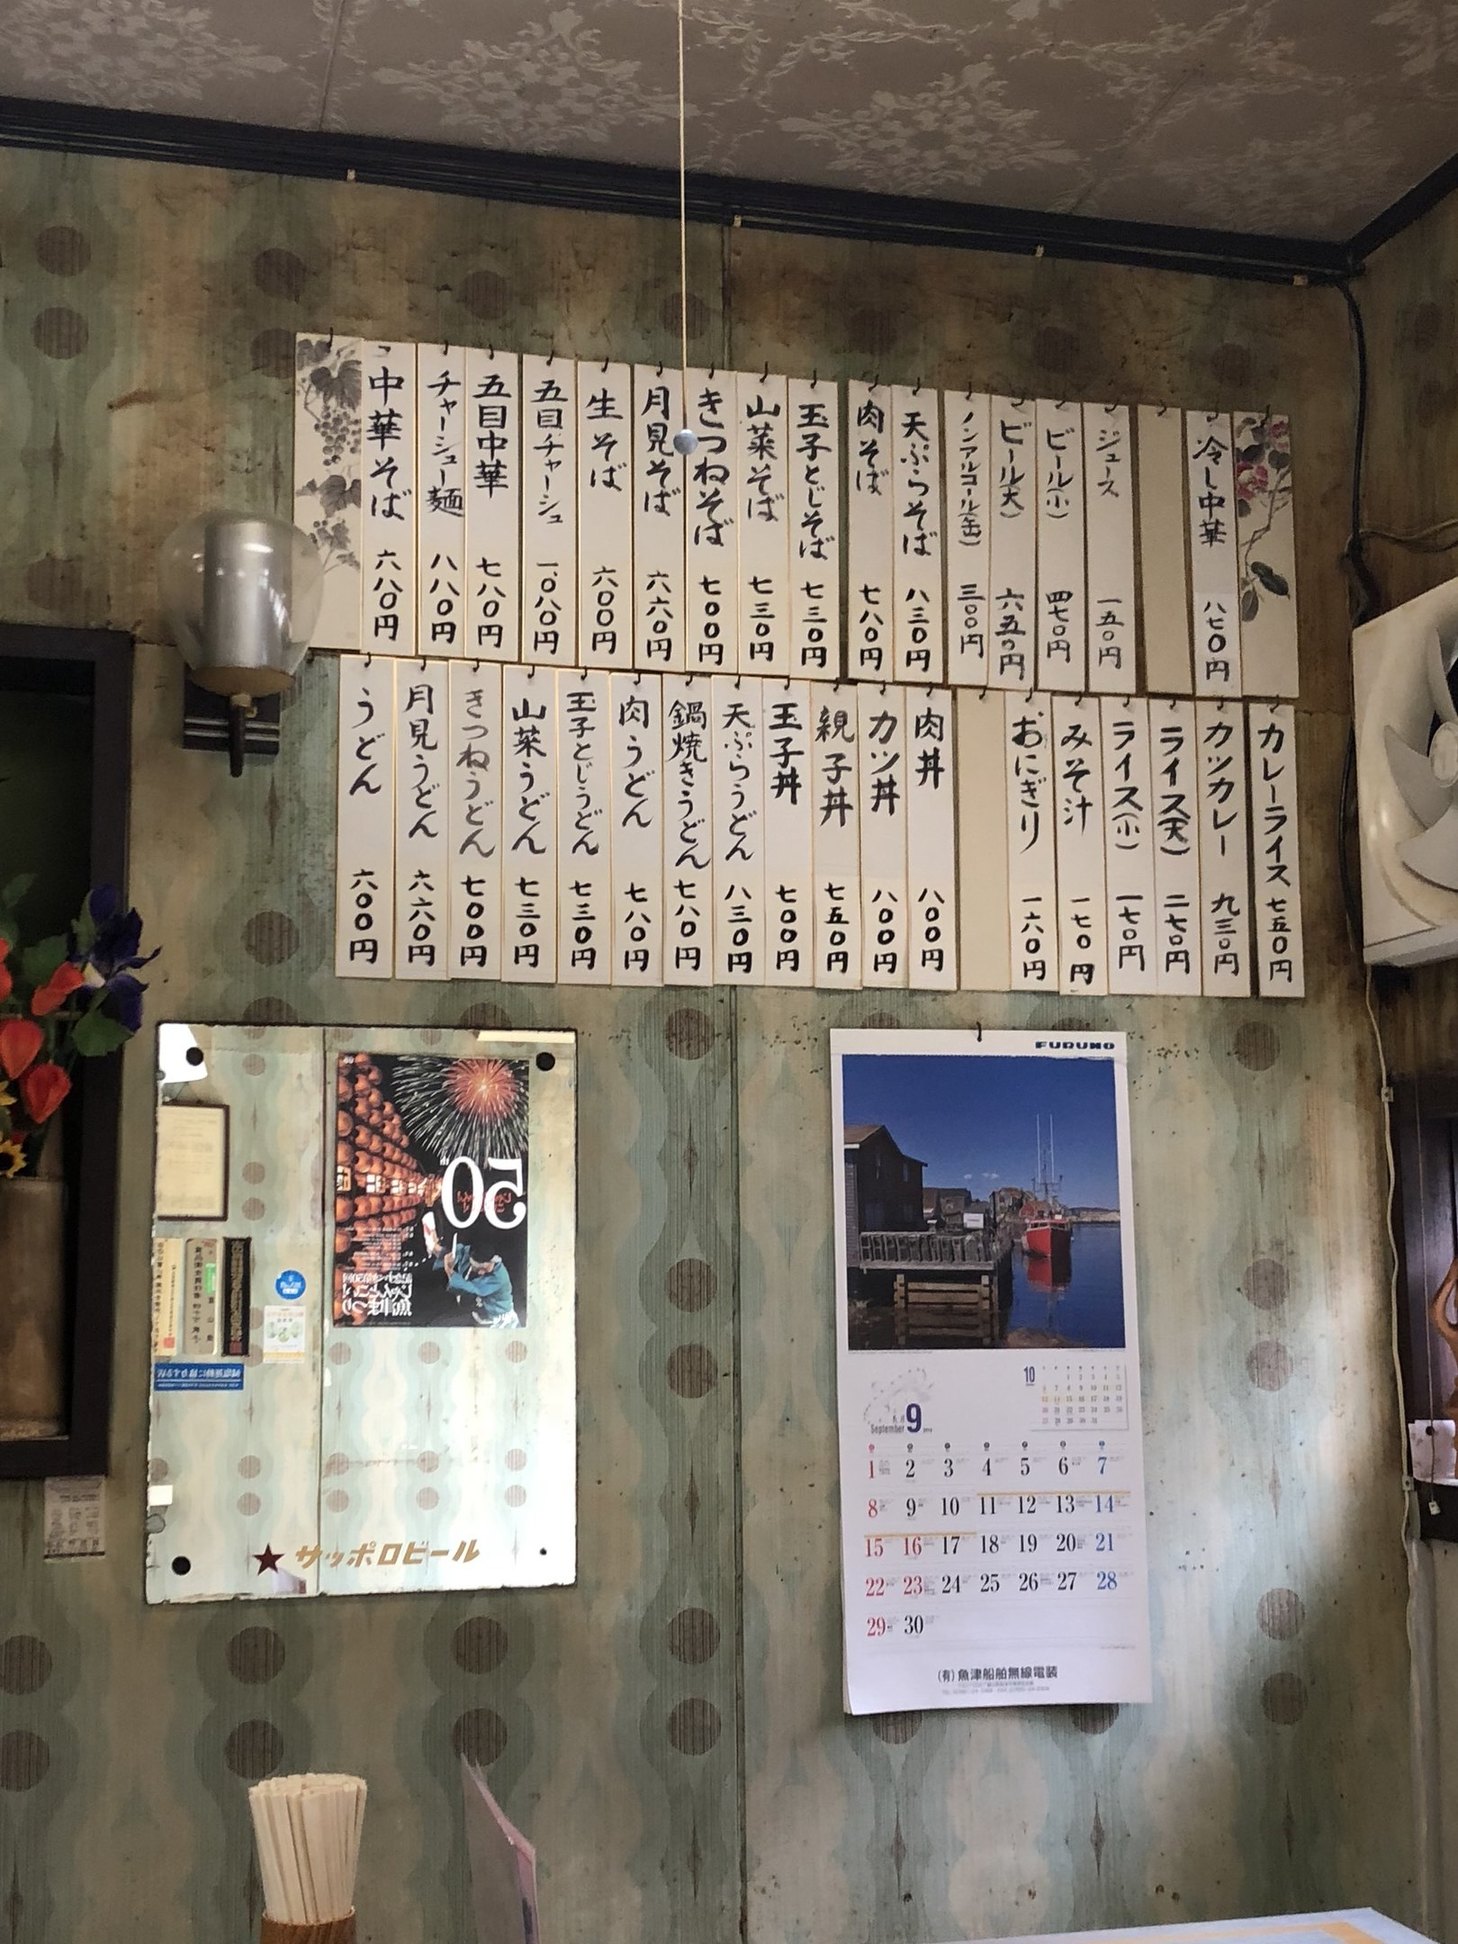 中華そば 六八〇円
チャーシュー麺 八八〇円
五目中華 七八〇円
五目チャーシュ 一、〇八〇円
生そば 六〇〇円
月見そば 六六〇円
きつねそば 七〇〇円
山菜そば 七三〇円
玉子とじそば 七三〇円
肉そば 七八〇円
天ぷらそば 八三〇円
ノンアルコール(缶) 三〇〇円
ビール(大) 六五〇円
ビール(小) 四七〇円
ジュース 一五〇円
冷し中華 八七〇円
うどん 六〇〇円
月見うどん 六六〇円
きつねうどん 七〇〇円
山菜うどん 七三〇円
玉子とじうどん 七三〇円
肉うどん 七八〇円
鍋焼きうどん 七八〇円
天ぷらうどん 八三〇円
玉子丼 七〇〇円
親子丼 七五〇円
カツ丼 八〇〇円
肉丼 八〇〇円
おにぎり 一六〇円
みそ汁 一七〇円
ライス(小) 一七〇円
ライス(大) 二七〇円
カツカレー 九三〇円
カレーライス 七五〇円
50
サッポロビール
FURUNO
10
September 9
1 2 3 4 5 6 7
8 9 10 11 12 13 14
15 16 17 18 19 20 21
22 23 24 25 26 27 28
29 30
(有)魚津船舶無線電装